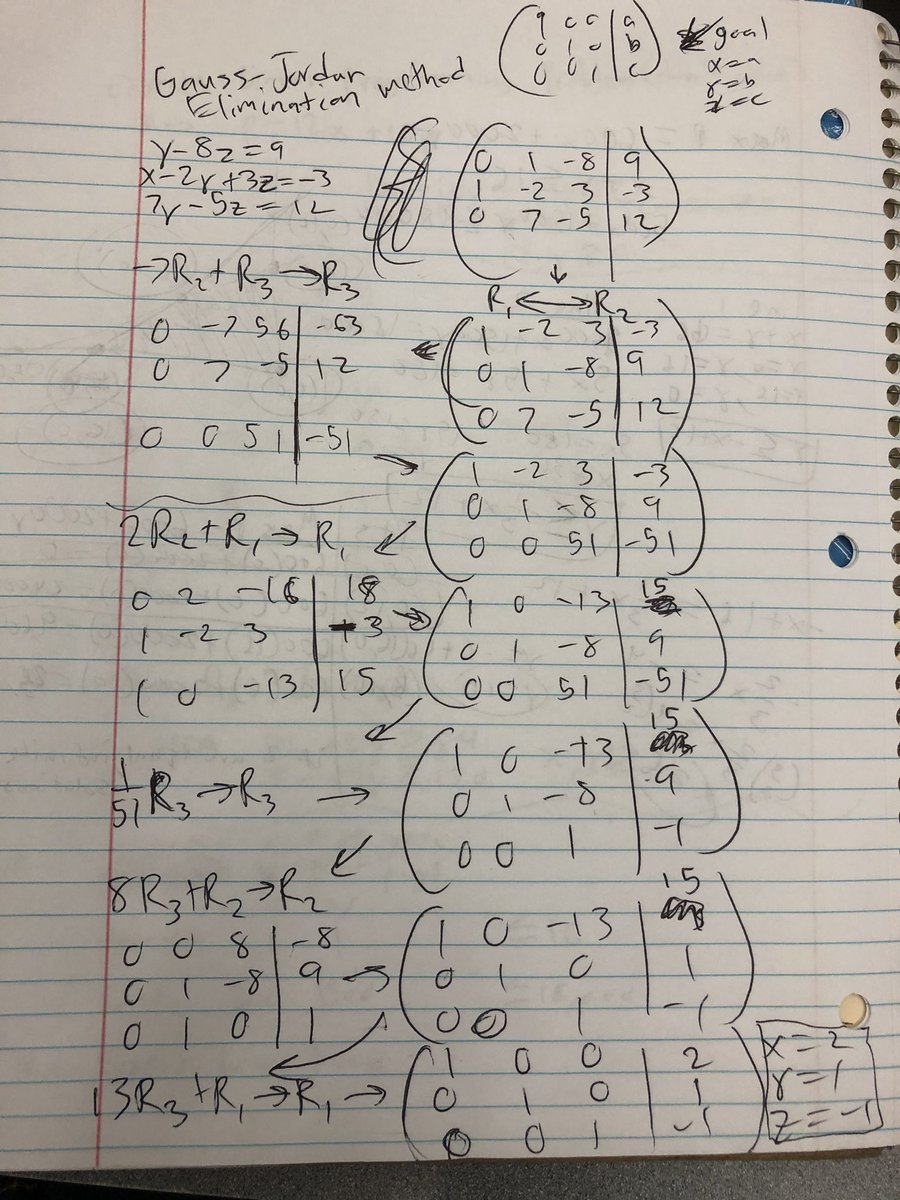 Gauss-Jordan
Elimination method
9 0 0 | a
0 1 0 | b
0 0 1 | c
goal
x=a
y=b
z=c
y-8z=9
x-2y+3z=-3
7y-5z=12
0 1 -8 | 9
1 -2 3 | -3
0 7 -5 | 12
R₁ ↔ R₂
1 -2 3 | -3
0 1 -8 | 9
0 7 -5 | 12
-7R₂+R₃→R₃
0 -7 56 | -63
0 7 -5 | 12
0 0 51 | -51
1 -2 3 | -3
0 1 -8 | 9
0 0 51 | -51
2R₂+R₁→R₁
0 2 -16 | 18
1 -2 3 | -3
1 0 -13 | 15
1 0 -13 | 15
0 1 -8 | 9
0 0 51 | -51
1/51 R₃→R₃ →
1 0 -13 | 15
0 1 -8 | 9
0 0 1 | -1
8R₃+R₂→R₂
0 0 8 | -8
0 1 -8 | 9
0 1 0 | 1
1 0 -13 | 15
0 1 0 | 1
0 0 1 | -1
13R₃+R₁→R₁ →
1 0 0 | 2
0 1 0 | 1
0 0 1 | -1
x=2
y=1
z=-1